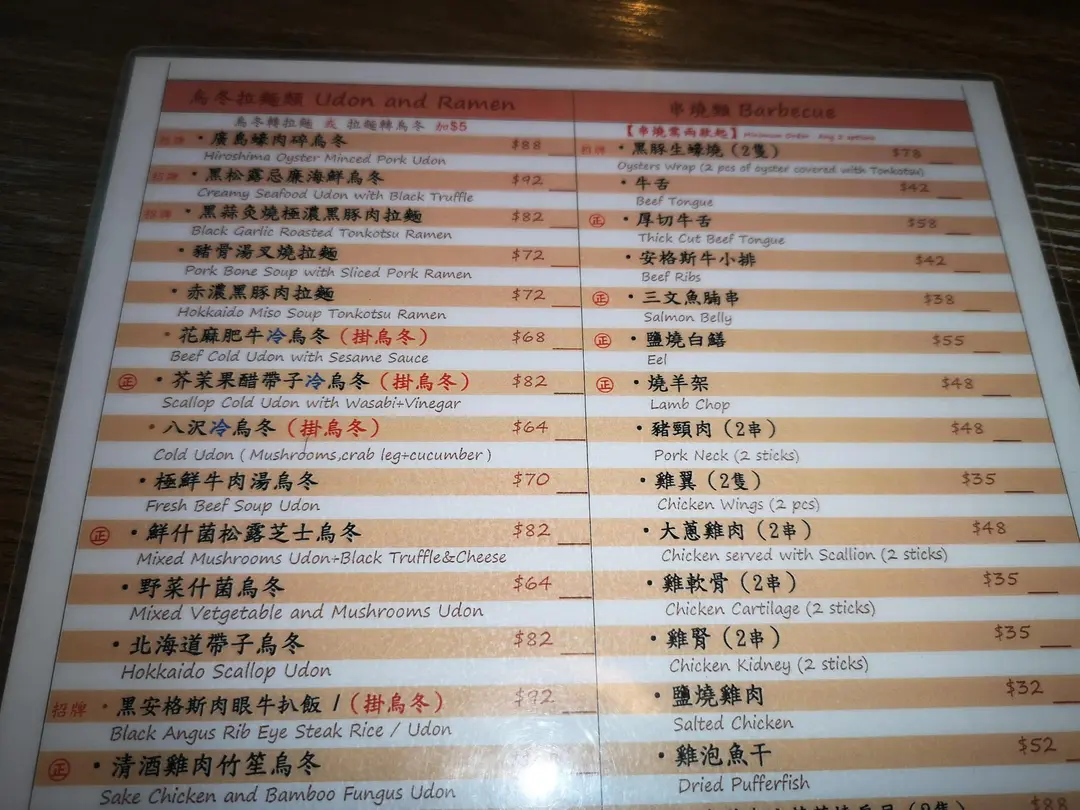 烏冬拉麵類 Udon and Ramen
烏冬轉拉麵 或 拉麵轉烏冬 加$5
招牌 • 廣島蠔肉碎烏冬 $88
Hiroshima Oyster Minced Pork Udon
招牌 • 黑松露忌廉海鮮烏冬 $92
Creamy Seafood Udon with Black Truffle
招牌 • 黑蒜炙燒極濃黑豚肉拉麵 $82
Black Garlic Roasted Tonkotsu Ramen
• 豬骨湯叉燒拉麵 $72
Pork Bone Soup with Sliced Pork Ramen
• 赤濃黑豚肉拉麵 $72
Hokkaido Miso Soup Tonkotsu Ramen
• 花麻肥牛冷烏冬（掛烏冬） $68
Beef Cold Udon with Sesame Sauce
正 • 芥茉果醋帶子冷烏冬（掛烏冬） $82
Scallop Cold Udon with Wasabi+Vinegar
• 八沢冷烏冬（掛烏冬） $64
Cold Udon ( Mushrooms,crab leg+cucumber )
• 極鮮牛肉湯烏冬 $70
Fresh Beef Soup Udon
正 • 鮮什菌松露芝士烏冬 $82
Mixed Mushrooms Udon+Black Truffle&Cheese
• 野菜什菌烏冬 $64
Mixed Vetgetable and Mushrooms Udon
• 北海道帶子烏冬 $82
Hokkaido Scallop Udon
招牌 • 黑安格斯肉眼牛扒飯 /（掛烏冬） $92
Black Angus Rib Eye Steak Rice / Udon
正 • 清酒雞肉竹笙烏冬
Sake Chicken and Bamboo Fungus Udon
串燒類 Barbecue
【串燒需兩款起】Minimum Order Any 2 options
招牌 • 黑豚生蠔燒 (2隻) $78
Oysters Wrap (2 pcs of oyster covered with Tonkotsu)
• 牛舌 $42
Beef Tongue
正 • 厚切牛舌 $58
Thick Cut Beef Tongue
• 安格斯牛小排 $42
Beef Ribs
正 • 三文魚腩串 $38
Salmon Belly
正 • 鹽燒白鱔 $55
Eel
正 • 燒羊架 $48
Lamb Chop
• 豬頸肉 (2串) $48
Pork Neck (2 sticks)
• 雞翼 (2隻) $35
Chicken Wings (2 pcs)
• 大蔥雞肉 (2串) $48
Chicken served with Scallion (2 sticks)
• 雞軟骨 (2串) $35
Chicken Cartilage (2 sticks)
• 雞腎 (2串) $35
Chicken Kidney (2 sticks)
• 鹽燒雞肉 $32
Salted Chicken
• 雞泡魚干 $52
Dried Pufferfish
$88